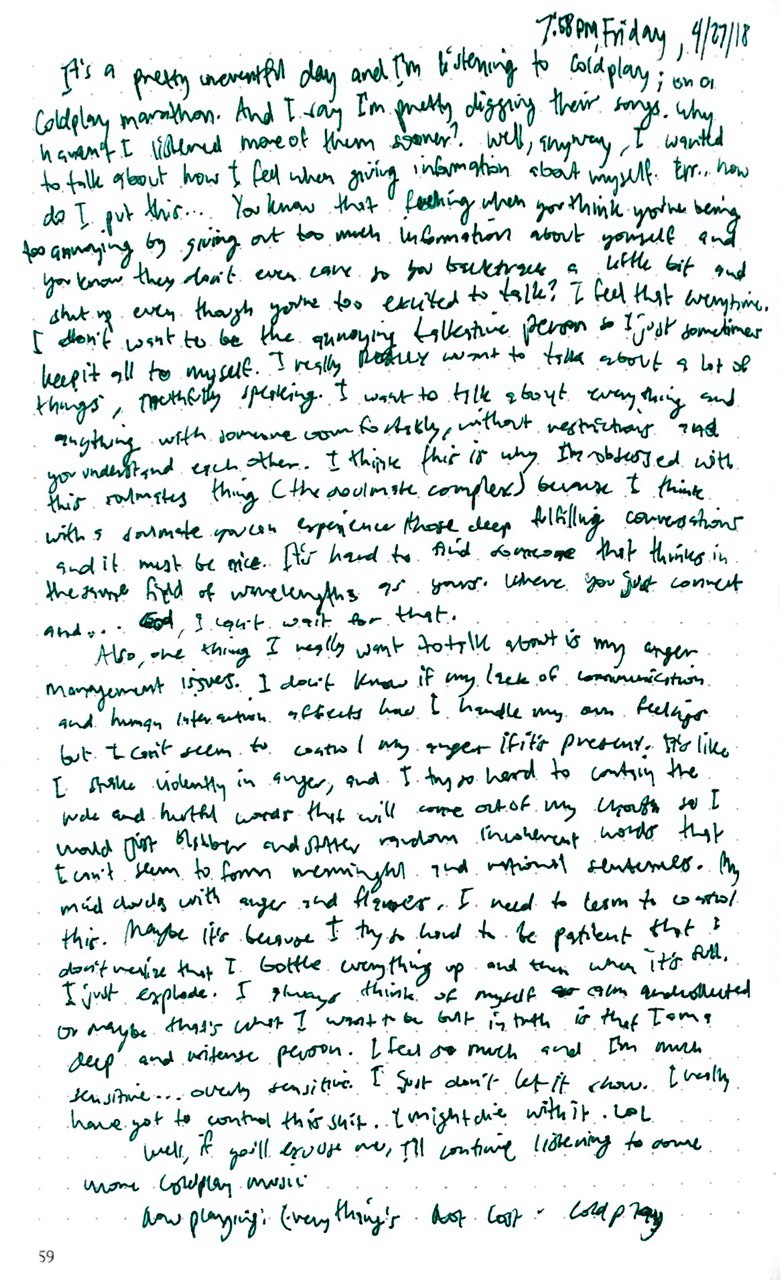 7:58 PM, Friday, 4/27/18
It's a pretty uneventful day and I'm listening to Coldplay; on a
Coldplay marathon. And I say I'm pretty digging their songs. Why
haven't I listened more of them sooner? Well, anyway, I wanted
to talk about how I feel when giving information about myself. Err.. how
do I put this... You know that feeling when you think you're being
too annoying by giving out too much information about yourself and
you know they don't even care so you backtrack a little bit and
shut up even though you're too excited to talk? I feel that everytime.
I don't want to be the annoying talkative person so I just sometimes
keep it all to myself. I really really want to talk about a lot of
things, truthfully speaking. I want to talk about everything and
anything with someone comfortably, without restrictions and
you understand each other. I think this is why I'm obsessed with
this soulmates thing (the soulmate complex) because I think
with a soulmate you can experience those deep fulfilling conversations
and it must be nice. It's hard to find someone that thinks in
the same field of wavelengths as yours. Where you just connect
and... God, I can't wait for that.
Also, one thing I really want to talk about is my anger
management issues. I don't know if my lack of communication
and human interaction affects how I handle my own feelings
but I can't seem to control my anger if it's present. It's like
I strike violently in anger, and I try so hard to contain the
rude and hurtful words that will come out of my mouth so I
would just blabber and stutter random incoherent words that
I can't seem to form meaningful and rational sentences. My
mind clouds with anger and flames. I need to learn to control
this. Maybe it's because I try so hard to be patient that I
don't realize that I bottle everything up and then when it's full.
I just explode. I always think of myself as calm and collected
or maybe that's what I want to be but in truth is that I am a
deep and intense person. I feel so much and I'm much
sensitive... overly sensitive. I just don't let it show. I really
have got to control this shit. I might die with it. LOL
Well, if you'll excuse me, I'll continue listening to some
more Coldplay music
Now playing: Everything's Not Lost - Coldplay
59